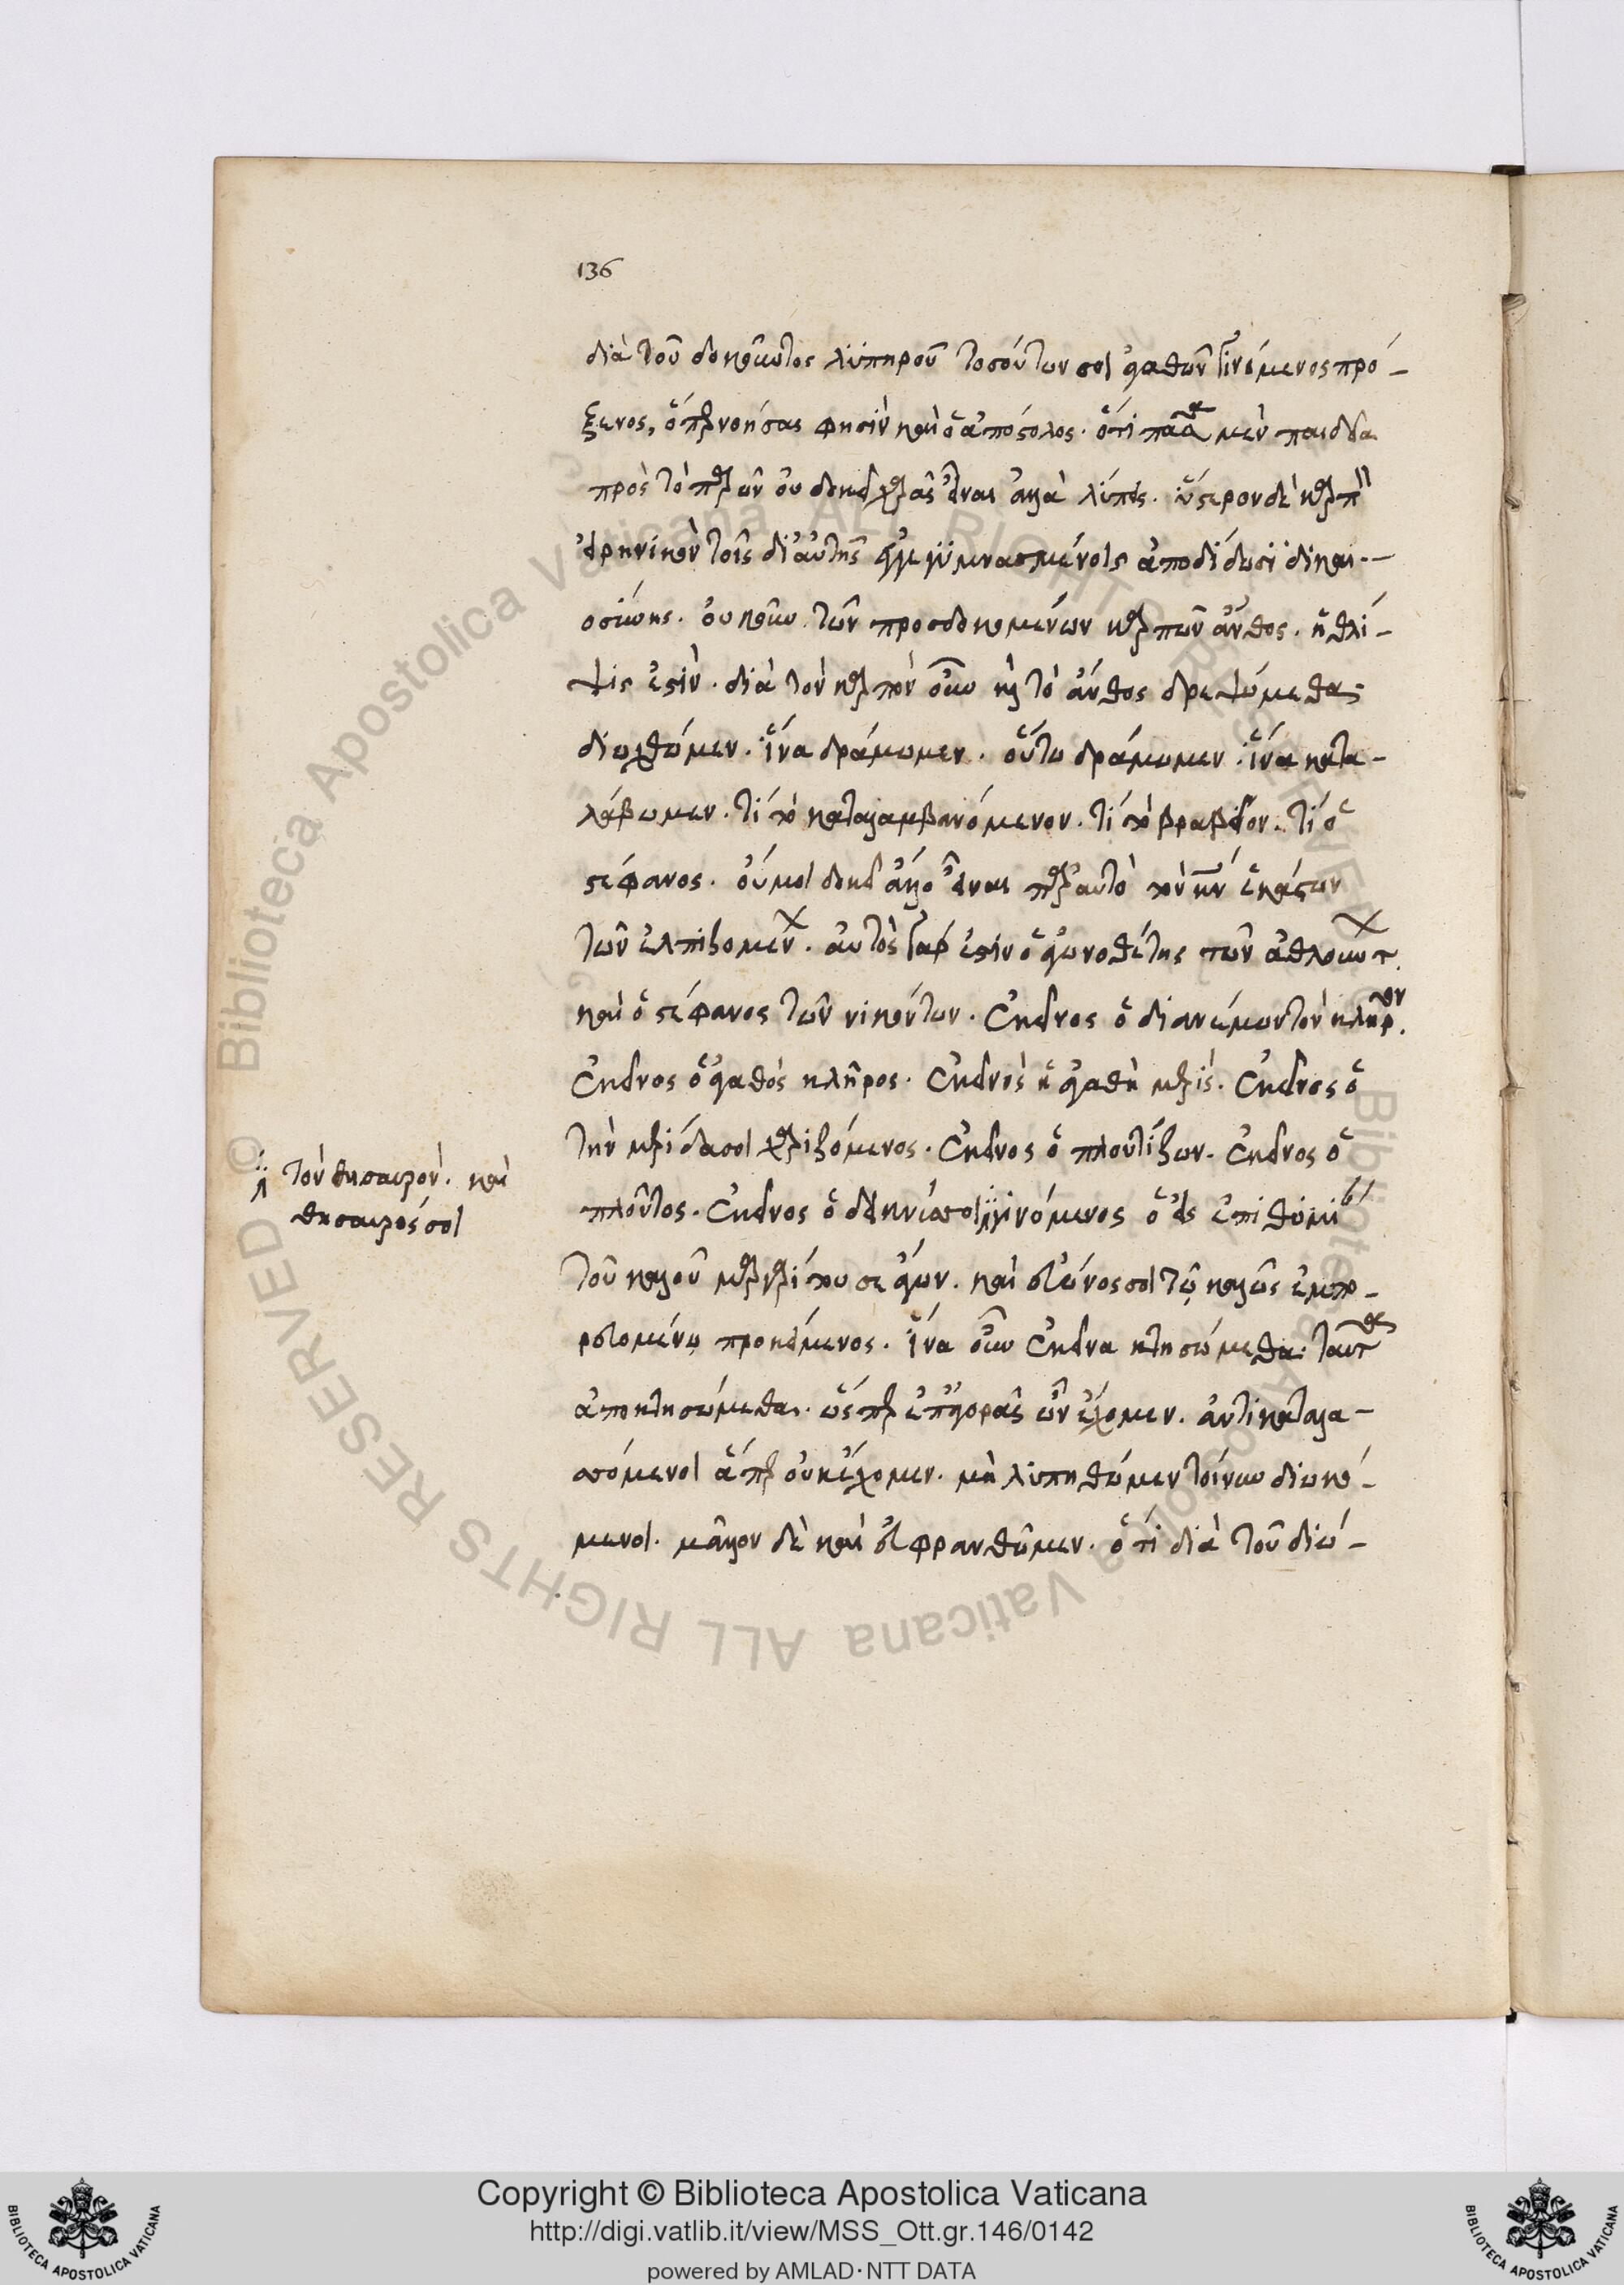 136
διὰ τοῦ δοκοῦντος λυπηροῦ τοσούτων σοι ἀγαθῶν γινόμενος πρό-
ξενος, ὅπερ νοήσας φησὶν καὶ ὁ ἀπόστολος. ὅτι πᾶσα μὲν παιδεία
πρὸς τὸ παρὸν οὐ δοκεῖ χαρᾶς εἶναι ἀλλὰ λύπης. ὕστερον δὲ καρπὸν
εἰρηνικὸν τοῖς δι' αὐτῆς γεγυμνασμένοις ἀποδίδωσι δικαι-
οσύνης. οὐκοῦν τῶν προσδοκωμένων καρπῶν ἄνθος. ἡ θλί-
ψις ἐστίν. διὰ τὸν καρπὸν οὖν καὶ τὸ ἄνθος δρεψώμεθα
διωχθῶμεν. ἵνα δράμωμεν. οὕτω δράμωμεν. ἵνα κατα-
λάβωμεν. τί τὸ καταλαμβανόμενον. τί τὸ βραβεῖον. τί ὁ
στέφανος. οὔ μοι δοκεῖ ἄλλο εἶναι παρ' αὐτὸν τὸν κν ἕκαστον
τῶν ἐλπιζομένων. αὐτὸς γάρ ἐστιν ὁ ἀγωνοθέτης τῶν ἀθλούντων.
καὶ ὁ στέφανος τῶν νικώντων. ἐκεῖνος ὁ διανέμων τὸν κλῆρον.
ἐκεῖνος ὁ ἀγαθὸς κλῆρος. ἐκεῖνος ἡ ἀγαθὴ μερίς. ἐκεῖνος ὁ
τὴν μερίδα σοι χαριζόμενος. ἐκεῖνος ὁ πλουτίζων. ἐκεῖνος ὁ
πλοῦτος. ἐκεῖνος ὁ δεικνύς σοι γινόμενος ὁ εἰς ἐπιθυμίαν
τὸν θησαυρόν. καὶ
θησαυρός σοι
τοῦ καλοῦ μαργαρίτου σε ἄγων. καὶ ὤνιός σοι τῷ καλῶς ἐμπο-
ρευομένῳ προκείμενος. ἵνα οὖν ἐκεῖνα κτησώμεθα. ταῦτα
ἀποκτησώμεθα. ὥσπερ ἐπ' ἀγορᾶς ὧν ἔχομεν. ἀντικαταλλα-
σόμενοι ἅπερ οὐκ ἔχομεν. μὴ λυπηθῶμεν τοίνυν διωκό-
μενοι. μᾶλλον δὲ καὶ εὐφρανθῶμεν. ὅτι διὰ τοῦ διώ-
Copyright © Biblioteca Apostolica Vaticana
http://digi.vatlib.it/view/MSS_Ott.gr.146/0142
powered by AMLAD·NTT DATA
BIBLIOTECA APOSTOLICA VATICANA
BIBLIOTECA APOSTOLICA VATICANA
© Biblioteca Apostolica Vaticana ALL RIGHTS RESERVED
© Biblioteca Apostolica Vaticana ALL RIGHTS RESERVED